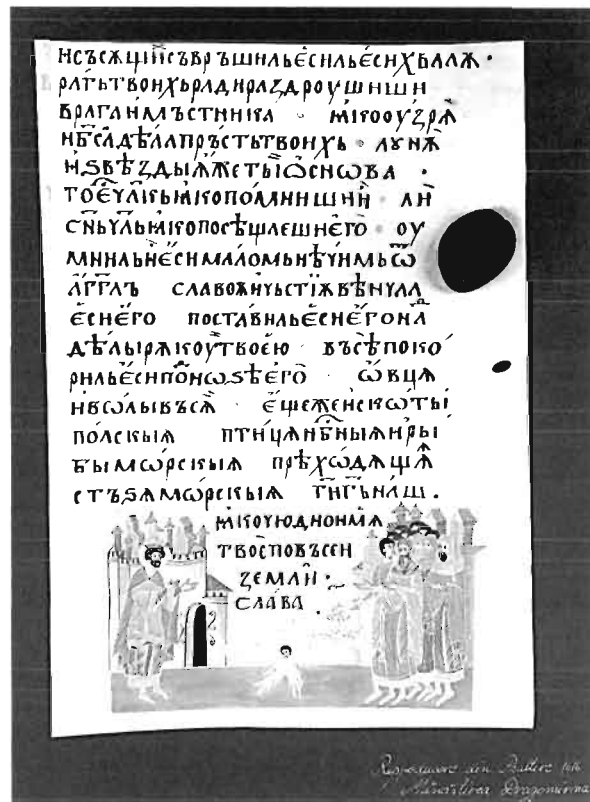 исъсѫщи́исъвръшильесильесихвалѫ·
рагътвоихьрадираздроушиши
врагаимъстника · ꙗкооузрѧ
нб҃садѣлапръстътвоихь · лунѫ
иѕвѣздыѧжетыѡснѡва ·
тоечл҃кьꙗкопомнишии ли
сн҃ьчл҃ьꙗкопосѣщаешиего оу
мнильиесималомьнѣчимьѿ
агг҃лъ славоѫичьстїѫвѣнчал
есиего поставильесиегона
дѣлырѫкоутвоею въсѣпоко
рильесипоⷣнѡѕѣего ѡвцѧ
ивѡлывъсѧ · ещежеискѡты
полскыѧ птицѧнб҃ныѧиры
бымѡрскыѧ прѣхѡдѧщѧѧ
стъѕѧмѡрскыѧ г҃иг҃ьнаш.
ꙗкочюдноимѧ
твоеповъсеи
земли·
слава.
Reproducere din Psaltire 1616
Mănăstirea Dragomirna